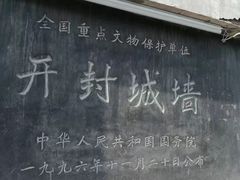 全国重点文物保护单位
开封城墙
中华人民共和国国务院
一九九六年十一月二十日公布